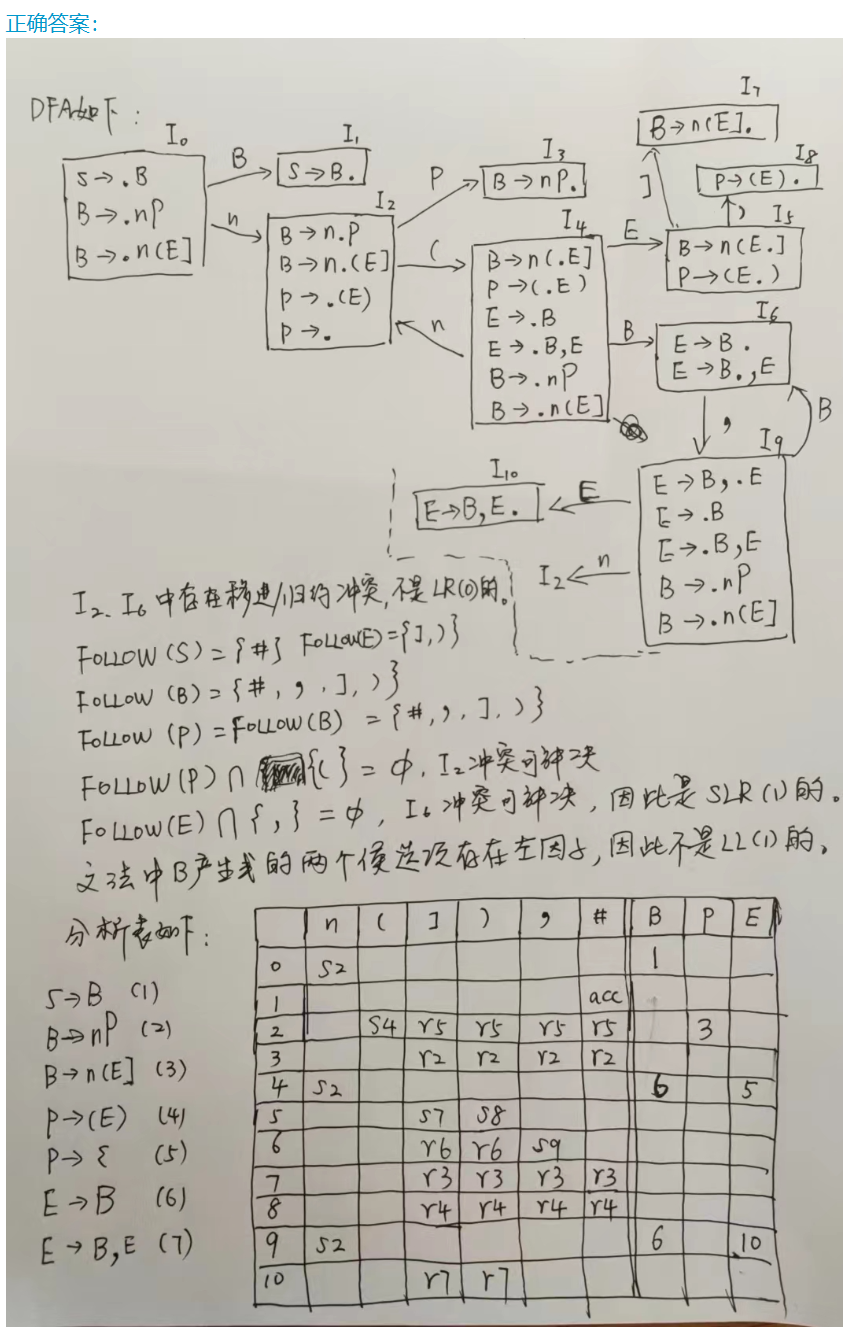 正确答案:
DFA如下:
I₀
S→.B
B→.nP
B→.n(E]
B
n
I₁
S→B.
I₂
B→n.P
B→n.(E]
P→.(E)
P→.
P
(
n
I₃
B→nP.
I₄
B→n(.E]
P→(.E)
E→.B
E→.B,E
B→.nP
B→.n(E]
E
B
I₇
B→n(E].
]
I₈
P→(E).
)
I₅
B→n(E.]
P→(E.)
I₆
E→B.
E→B.,E
,
B
I₉
E→B,.E
E→.B
E→.B,E
B→.nP
B→.n(E]
I₁₀
E→B,E.
E
I₂
n
I₂、I₆中存在移进/归约冲突,不是LR(0)的。
FOLLOW(S)={#} FOLLOW(E)={],)}
FOLLOW(B)={#,,,],)}
FOLLOW(P)=FOLLOW(B)={#,,,],)}
FOLLOW(P)∩{(}=φ,I₂冲突可解决
FOLLOW(E)∩{,}=φ,I₆冲突可解决,因此是SLR(1)的。
文法中B产生式的两个候选项存在左因子,因此不是LL(1)的。
分析表如下:
S→B (1)
B→nP (2)
B→n(E] (3)
P→(E) (4)
P→ε (5)
E→B (6)
E→B,E (7)
n ( ] ) , # B P E
0 S2 1
1 acc
2 S4 r5 r5 r5 r5 3
3 r2 r2 r2 r2
4 S2 6 5
5 S7 S8
6 r6 r6 S9
7 r3 r3 r3 r3
8 r4 r4 r4 r4
9 S2 6 10
10 r7 r7